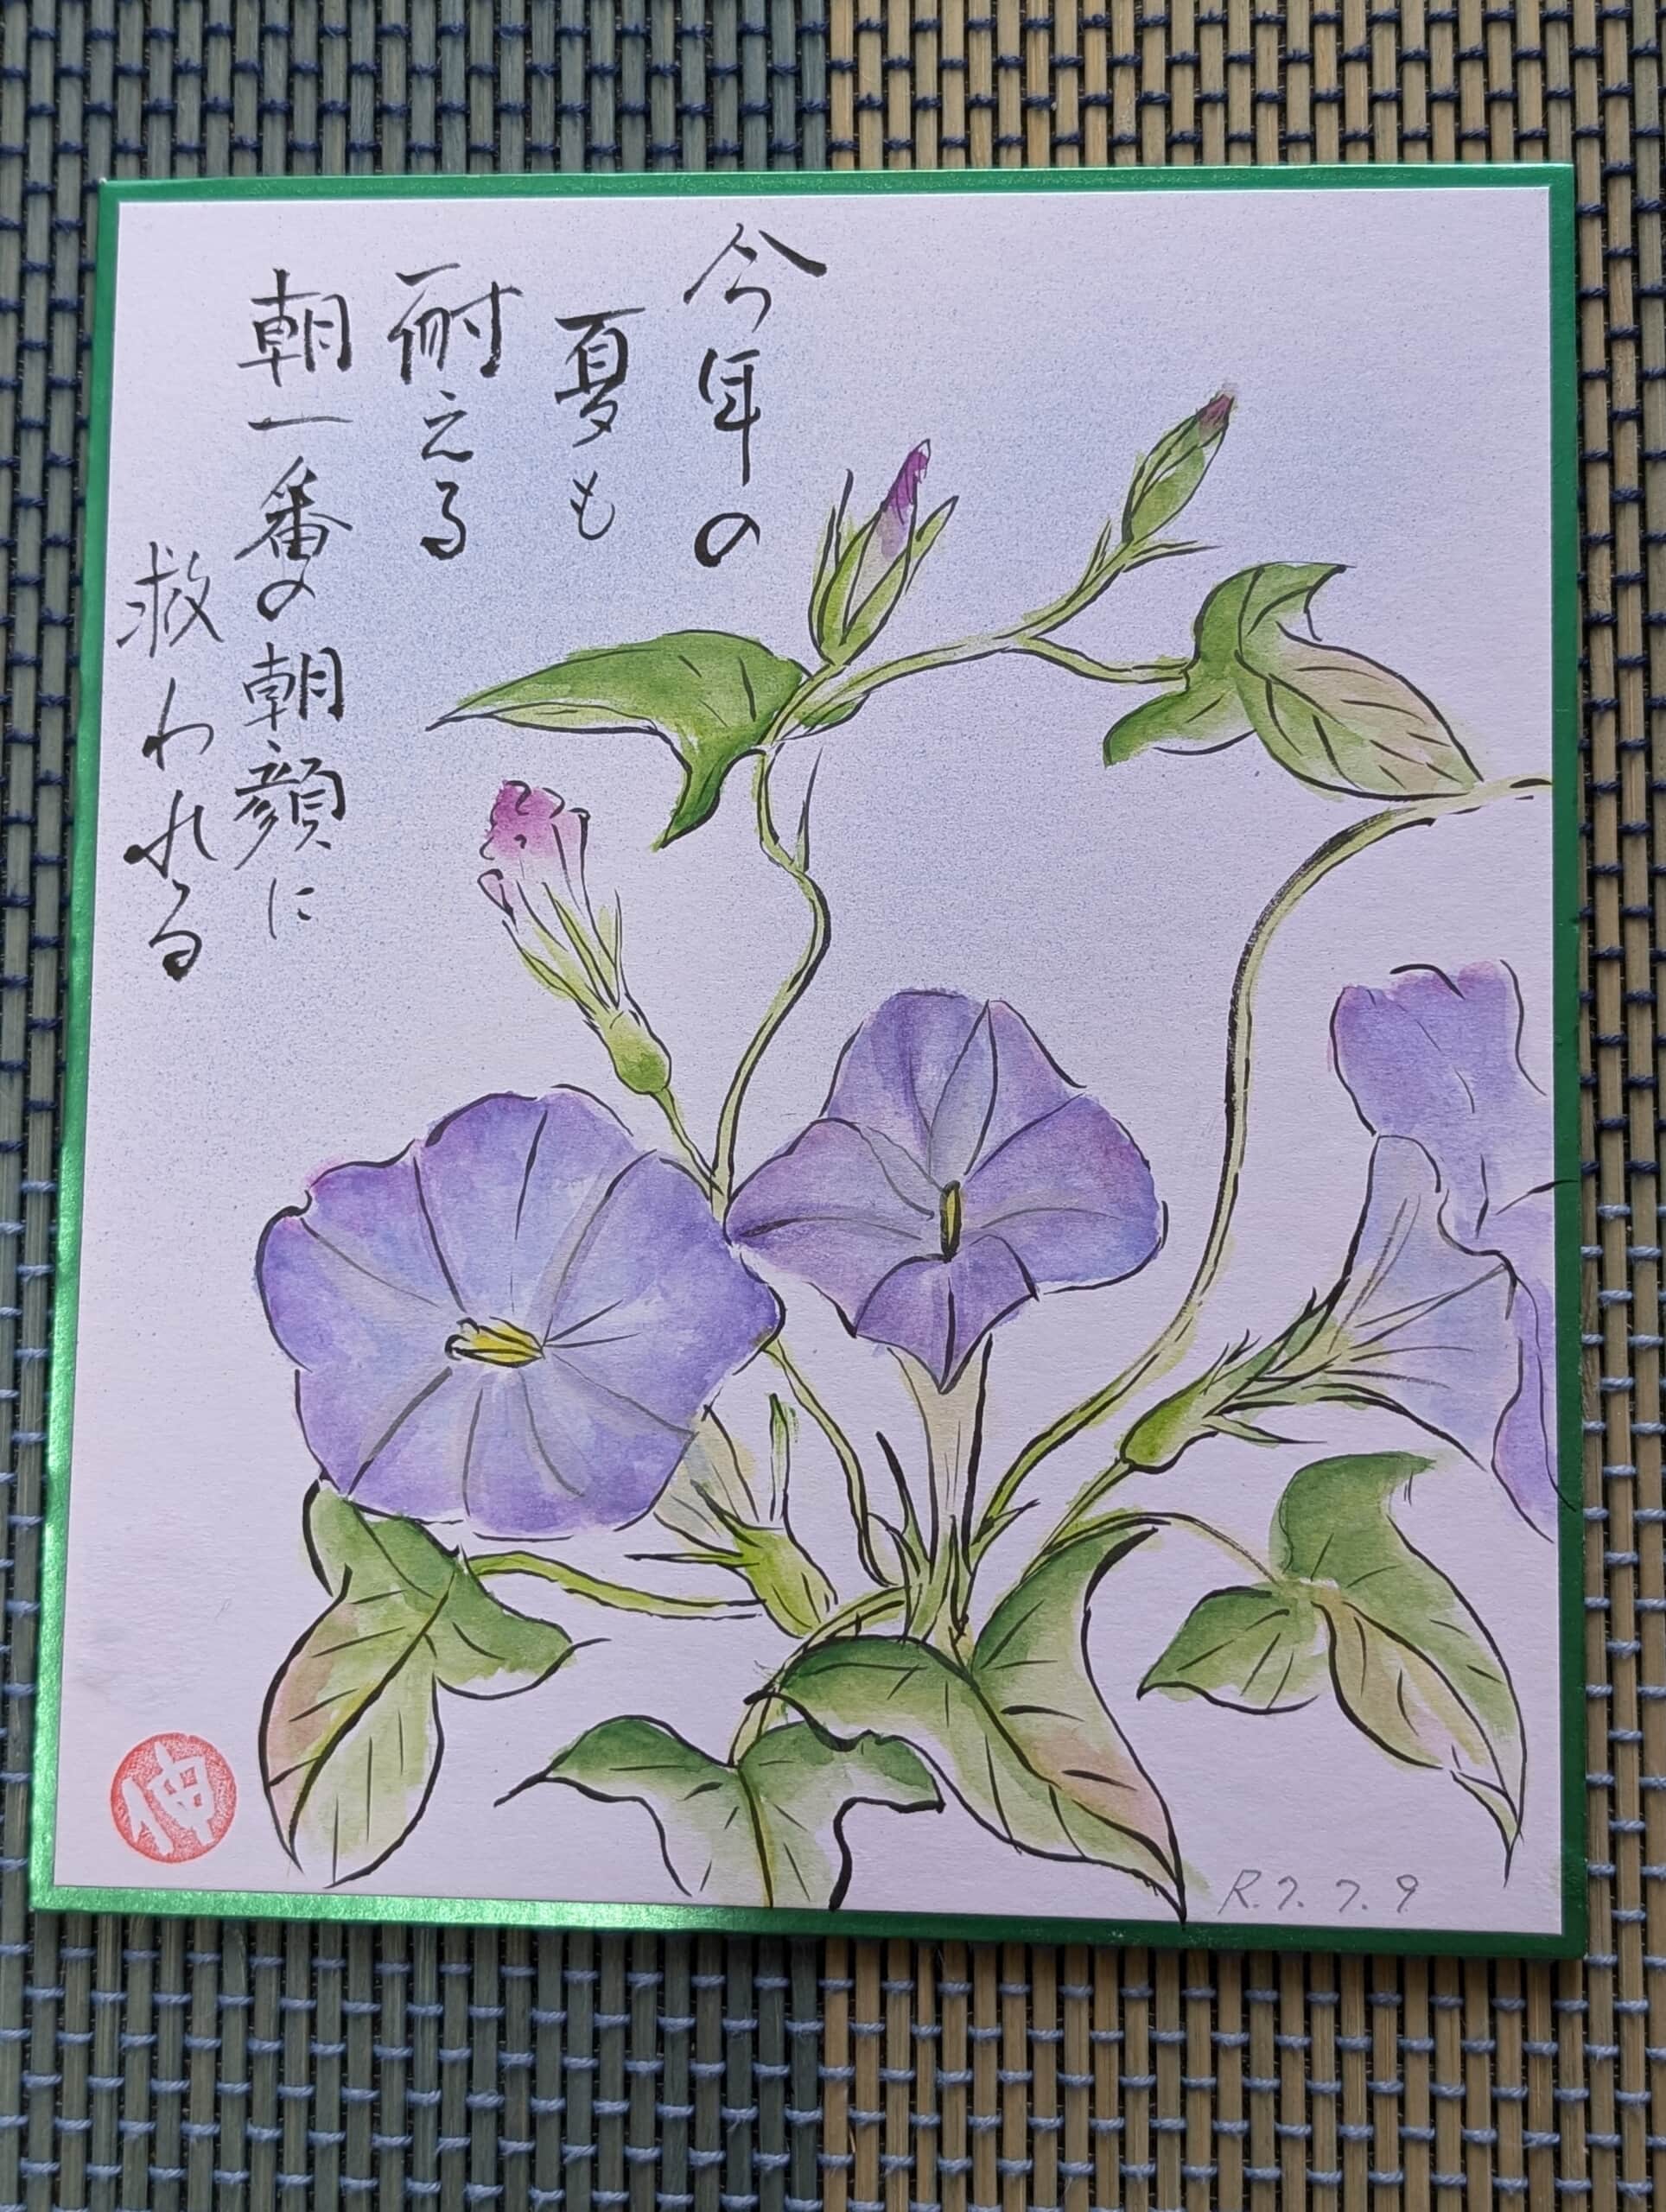 今年の
夏も
耐える
朝一番の朝顔に
救われる
伸
R.7.7.9